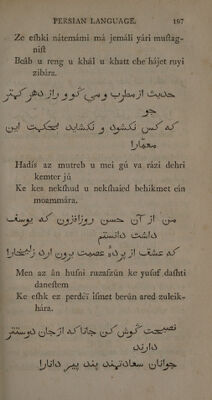 PERSIAN LANGUAGE. 197
Ze eſhki nátemámi má jemáli yári muſtág-
niſt
Beáb u reng u khál u khatt che hájet ruyi
zibára.
حديث از مطرب و مي كو و راز دهر كمتر
جو
كه كس نكشود و نكشايد بحكمت اين
معمارا
Hadís az mutreb u mei gú va rázi dehri
kemter jú
Ke kes nekſhud u nekſhaied behikmet ein
moammára.
من از آن حسن روزافزون كه يوسف
داشت دانستم
كه عشق از پرده عصمت برون ارد زليخارا
Men az ân huſni ruzafzún ke yuſuf daſhti
daneſtem
Ke eſhk ez perdeï iſmet berún ared zuleik-
hára.
نصيحت كوش كن جانا كه ازجان دوستتر
دارند
جوانان سعادتمند پند پير دانارا